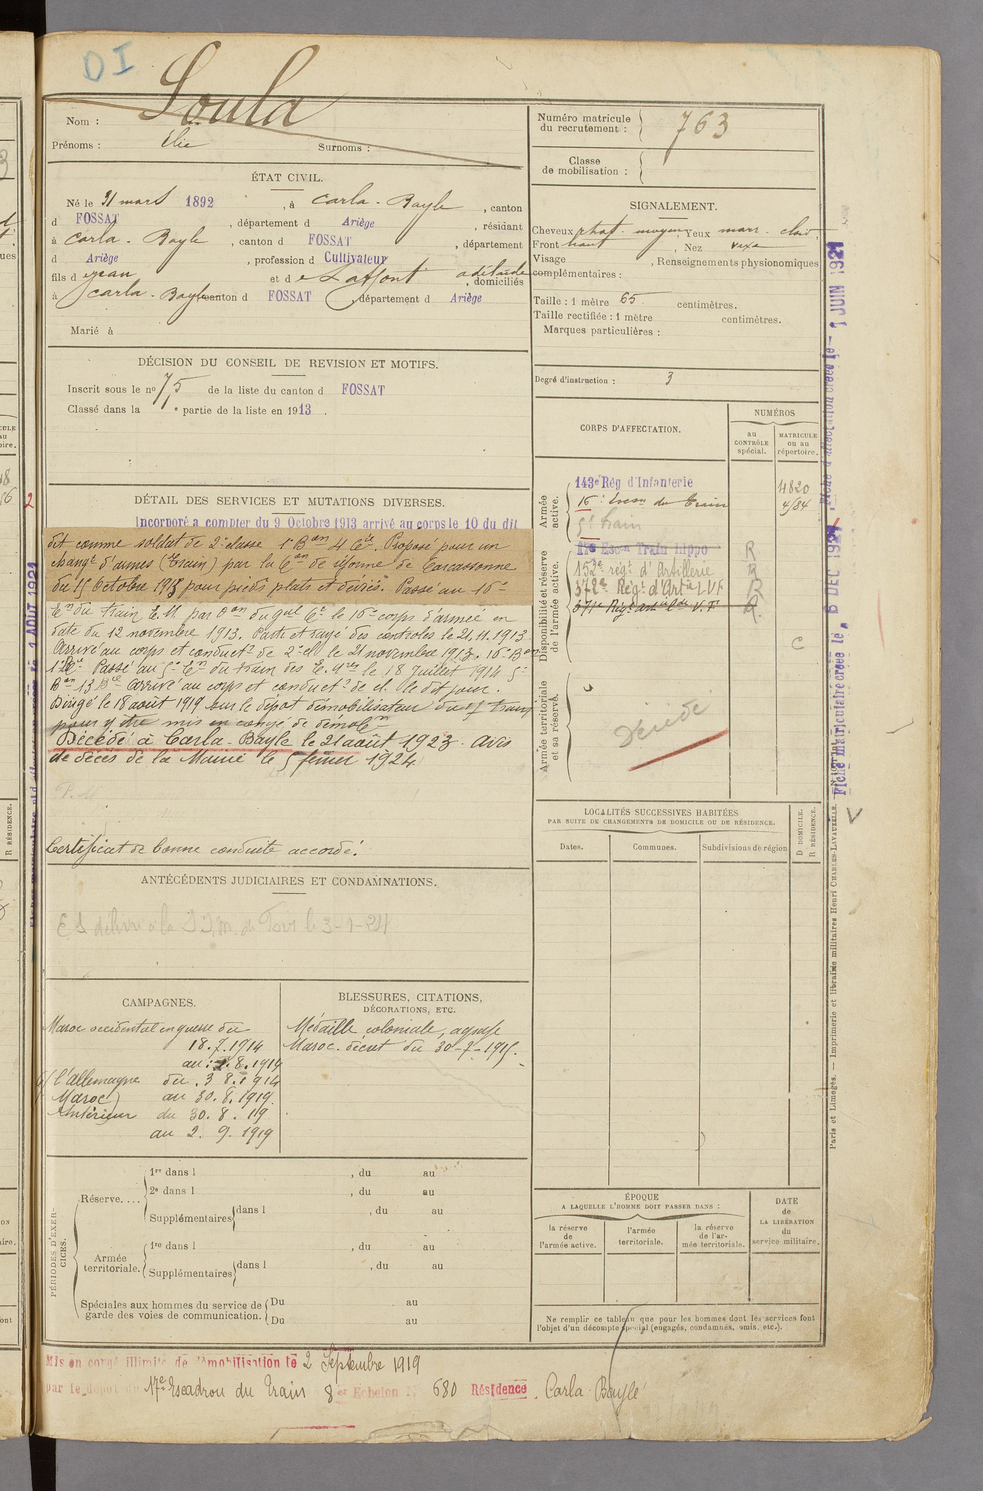 DI
Nom : Soula
Prénoms : Elie Surnoms :
Numéro matricule du recrutement : 763
Classe de mobilisation :
ÉTAT CIVIL.
Né le 31 mars 1892, à Carla-Bayle, canton
d FOSSAT, département d Ariège, résidant
à Carla-Bayle, canton d FOSSAT, département
d Ariège, profession d Cultivateur
fils d e Jean et d e Laffont adélaïde, domiciliés
à Carla-Bayle canton d FOSSAT, département d Ariège
Marié à
SIGNALEMENT.
Cheveux chat. moyen, Yeux marr. clair.
Front haut, Nez vexe
Visage , Renseignements physionomiques
complémentaires :
Taille : 1 mètre 65 centimètres.
Taille rectifiée : 1 mètre centimètres.
Marques particulières :
Degré d'instruction : 3
DÉCISION DU CONSEIL DE REVISION ET MOTIFS.
Inscrit sous le no 75 de la liste du canton d FOSSAT
Classé dans la 1e partie de la liste en 1913.
DÉTAIL DES SERVICES ET MUTATIONS DIVERSES.
Incorporé a compter du 9 Octobre 1913 arrivé au corps le 10 du dit
dit comme soldat de 2e classe 1r Bon 4 Cie. Proposé pour un
changt d'armes (train) par la Con de réforme de Carcassonne
du 15 Octobre 1913 "pour pieds plats et déviés". Passé au 16e
Eon du train E.M. par Don du gnal Ct le 16e corps d'armée en
date du 12 novembre 1913. Parti et rayé des contrôles le 21.11.1913
Arrivé au corps et conductr de 2e cl. le 21 novembre 1913. 16e Bon
1e Cie Passé au 5e Eon du train des E. qes le 18 Juillet 1914 5e
Bon 13 Bie arrivé au corps et conductr de cl. le dit jour.
Dirigé le 18 août 1919 sur le dépôt démobilisateur du 17 train
pour y être mis en congé de démobon
Décédé à Carla-Bayle le 21 août 1923. Avis
de décès de la Mairie le 5 février 1924
Certificat de bonne conduite accordé.
CORPS D'AFFECTATION.
NUMÉROS
au CONTRÔLE spécial.
MATRICULE ou au répertoire.
Armée active.
143e Rég d'Infanterie 4820
16e Escon du Train 4/84
5e train
Disponibilité et réserve de l'armée active.
17e Escon Train Hippo R
152e régt d'Artillerie R
372e Régt d'Arte L.V.F R
371e Régt art L de V. F R
C
Armée territoriale et sa réserve.
Décédé
LOCALITÉS SUCCESSIVES HABITÉES
PAR SUITE DE CHANGEMENTS DE DOMICILE OU DE RÉSIDENCE.
Dates. Communes. Subdivisions de région
D. DOMICILE.
R RÉSIDENCE.
ANTÉCÉDENTS JUDICIAIRES ET CONDAMNATIONS.
CAMPAGNES.
Maroc occidental en guerre du
18.7.1914
au : 2.8.1914
c/ l'Allemagne du 3.8.1914
(Maroc) au 30.8.1919.
Intérieur du 30.8.19
au 2.9.1919
BLESSURES, CITATIONS,
DÉCORATIONS, ETC.
Médaille coloniale, agrafe
Maroc. décret du 30-7-1915.
PÉRIODES D'EXERCICES.
Réserve....
1re dans l , du au
2e dans l , du au
Supplémentaires dans l , du au
Armée territoriale.
1re dans l , du au
Supplémentaires dans l , du au
Spéciales aux hommes du service de garde des voies de communication.
Du au
Du au
ÉPOQUE
A LAQUELLE L'HOMME DOIT PASSER DANS :
la réserve de l'armée active.
l'armée territoriale.
la réserve de l'armée territoriale.
DATE de LA LIBÉRATION du service militaire.
Ne remplir ce tableau que pour les hommes dont les services font
l'objet d'un décompte spécial (engagés, condamnés, omis, etc.).
Mis en congé illimité de démobilisation le 2 Septembre 1919
par le dépôt du 17e Escadron du Train 8er Echelon N° 680 Résidence. Carla Bayle
Fiche d'affectation créée le 1 JUIN 1921
Fiche matriculaire créée le 6 DEC 192
Paris et Limoges. — Imprimerie et librairie militaires Henri CHARLES-LAVAUZELLE.
1 AOUT 1921